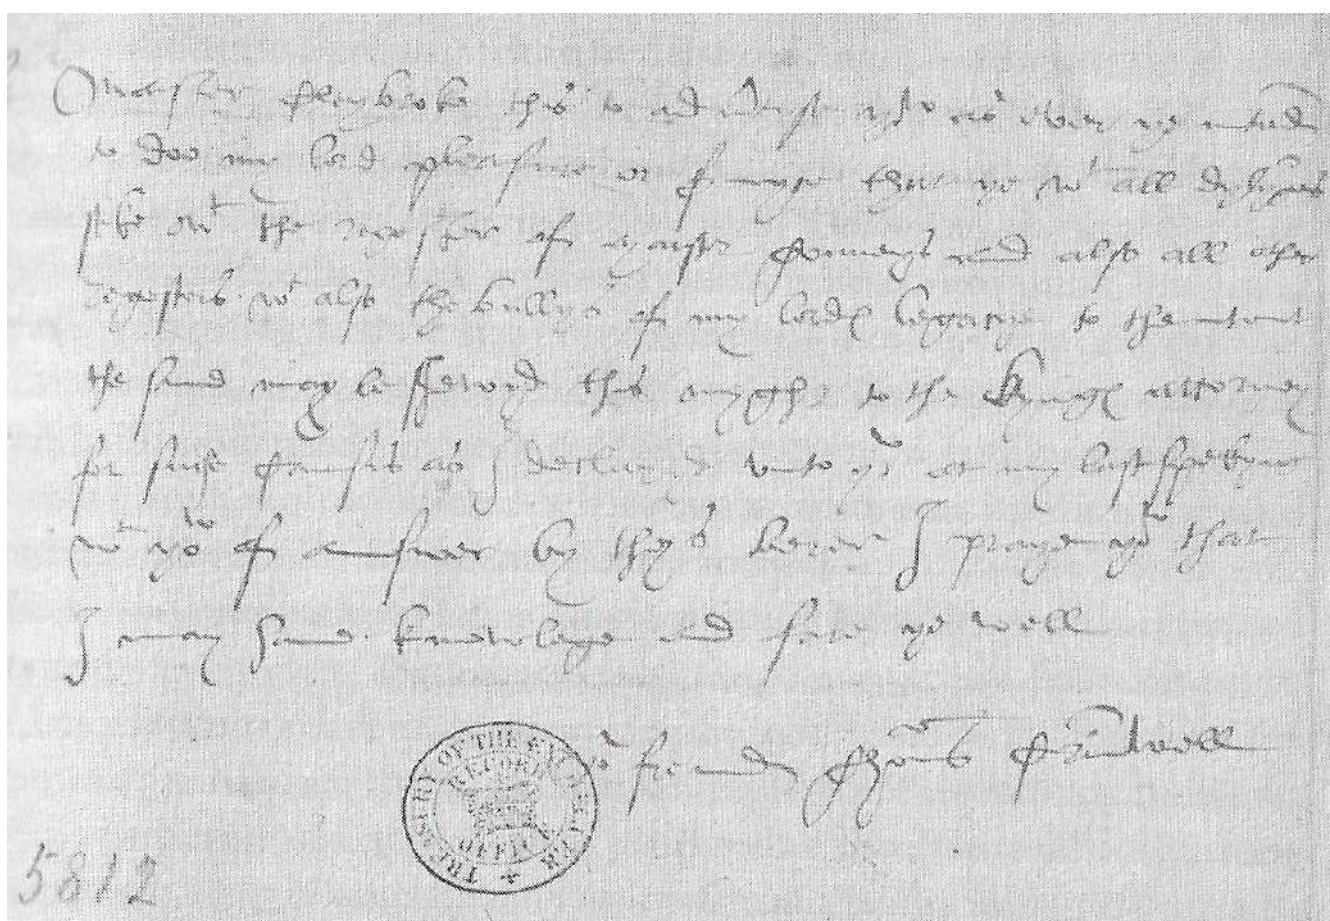 Maister Claybroke this to adv[er]tise yow as ever ye intend
to doo my lord pleasure or s[er]vyce that ye wt all dylygens
seke owt the regester of maister and also all other
regesters wt also the bullys of my lordes legacye to thentent
the same may be shewyd this nyght to the Kynges attorney
for suche causis as I declaryd unto yow at my last spekyng
wt yow of answer by thys berer I praye yow that
I may have knowlage and fare ye well
yor freend Thom[a]s Crumwell
TREASURY OF THE EXCHEQUER
RECORD
OFFICE
5812